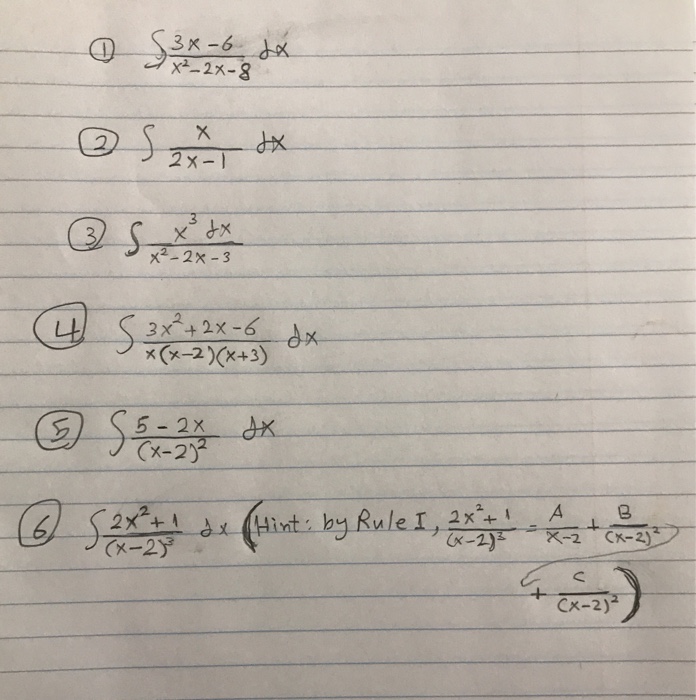 ① ∫ (3x-6)/(x²-2x-8) dx
② ∫ x/(2x-1) dx
③ ∫ x³ dx/(x²-2x-3)
④ ∫ (3x²+2x-6)/(x(x-2)(x+3)) dx
⑤ ∫ (5-2x)/(x-2)² dx
⑥ ∫ (2x²+1)/(x-2)³ dx (Hint: by Rule I, (2x²+1)/(x-2)³ = A/(x-2) + B/(x-2)²
+ C/(x-2)²)